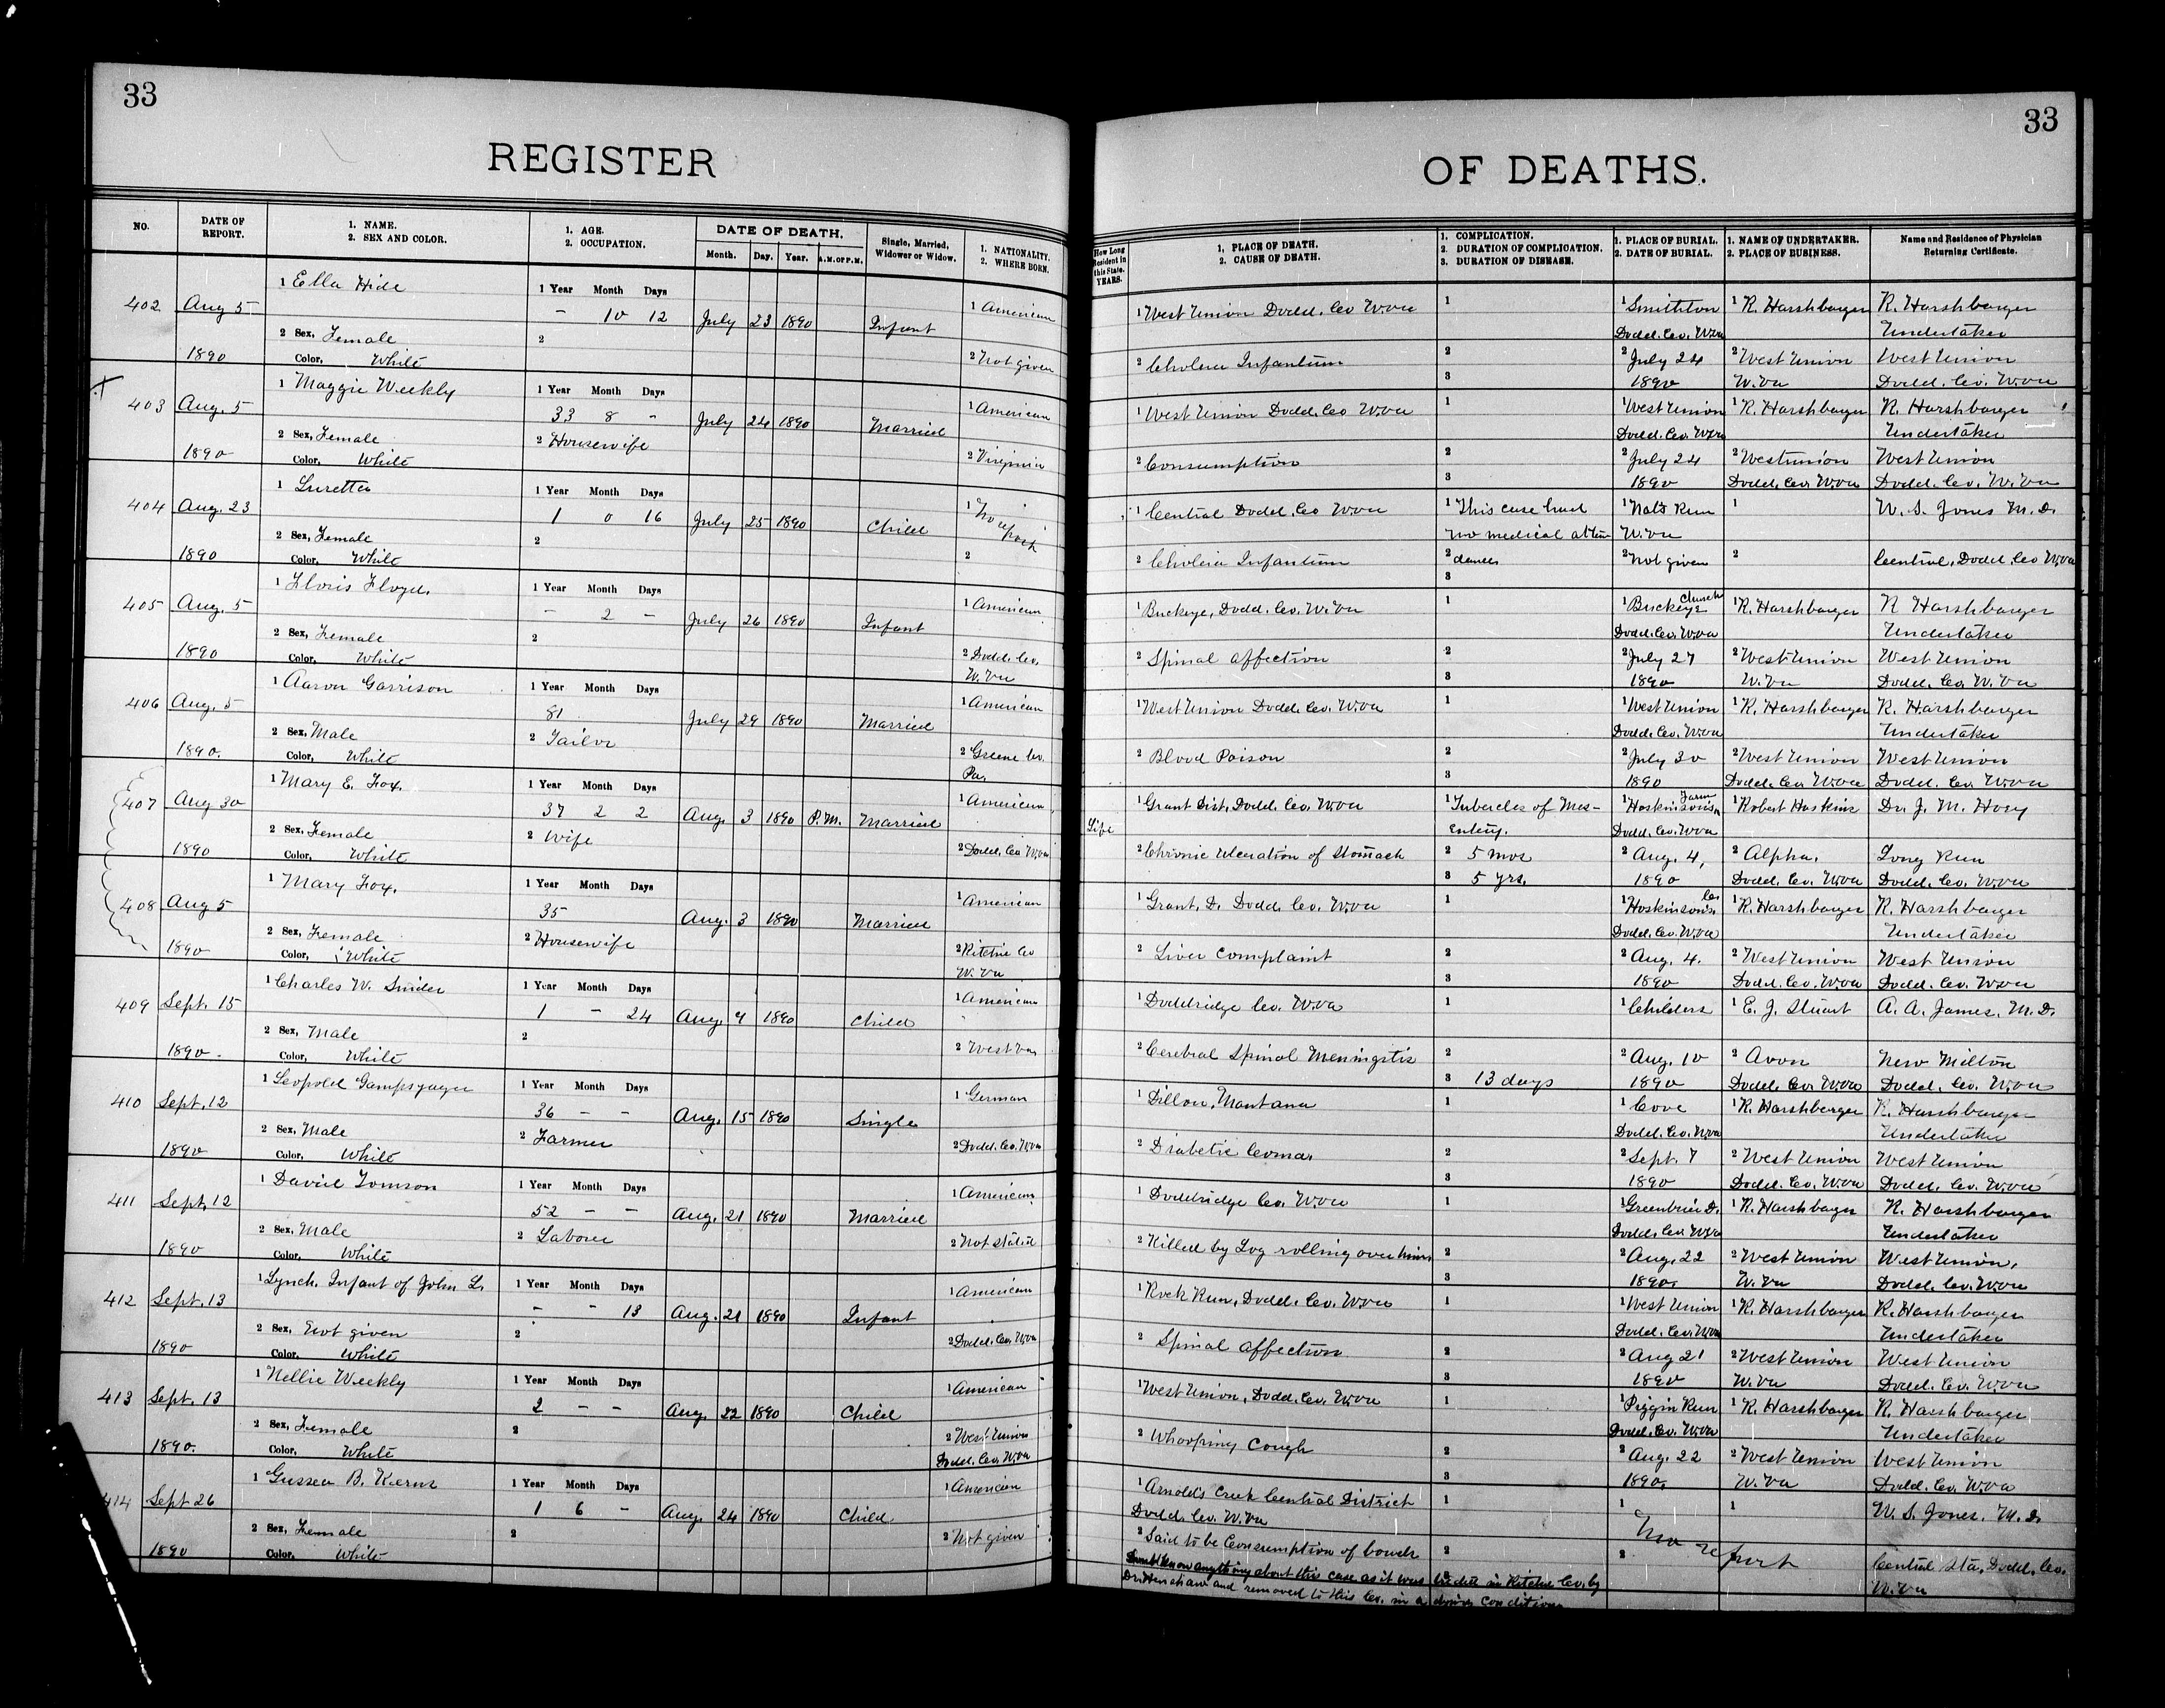 33
33
REGISTER OF DEATHS.
NO.
DATE OF REPORT.
1. NAME.
2. SEX AND COLOR.
1. AGE.
2. OCCUPATION.
DATE OF DEATH.
Month. Day. Year. A.M. or P.M.
Single, Married, Widower or Widow.
1. NATIONALITY.
2. WHERE BORN.
How Long Resident in this State. YEARS.
1. PLACE OF DEATH.
2. CAUSE OF DEATH.
1. COMPLICATION.
2. DURATION OF COMPLICATION.
3. DURATION OF DISEASE.
1. PLACE OF BURIAL.
2. DATE OF BURIAL.
1. NAME OF UNDERTAKER.
2. PLACE OF BUSINESS.
Name and Residence of Physician Returning Certificate.
402 Aug 5 1890
1 Ella Hide
2 Sex, Female
Color, White
1 Year Month Days
- 10 12
2
July 23 1890 Infant
1 American
2 Not given
1 West Union Dodd. Co W.va
2 Cholera Infantum
1
2
3
1 Smithton Dodd. Co. W.va
2 July 24 1890
1 R. Harshbarger
2 West Union W.Va
R. Harshbarger
Undertaker
West Union
Dodd. Co. W.va
403 Aug. 5 1890
1 Maggie Weekly
2 Sex, Female
Color, White
1 Year Month Days
33 8 -
2 Housewife
July 24 1890 Married
1 American
2 Virginia
1 West Union Dodd. Co W.va
2 Consumption
1
2
3
1 West Union Dodd. Co. W.va
2 July 24 1890
1 R. Harshbarger
2 Westunion Dodd. Co. W.va
R. Harshbarger
Undertaker
West Union
Dodd. Co. W.Va
404 Aug. 23 1890
1 Luretta
2 Sex, Female
Color, White
1 Year Month Days
1 0 16
2
July 25 1890 Child
1 No report
2
1 Central Dodd. Co W.va
2 Cholera Infantum
1 This case had
no medical atten
2 dance
3
1 Nolts Run W.va
2 Not given
1
2
W. S. Jones M. D.
Central, Dodd. Co W.va
405 Aug. 5 1890
1 Floris Floyd.
2 Sex, Female
Color, White
1 Year Month Days
- 2 -
2
July 26 1890 Infant
1 American
2 Dodd. Co. W.Va
1 Buckeye, Dodd. Co. W.va
2 Spinal affection
1
2
3
1 Buckeye Church
Dodd. Co. W.va
2 July 27 1890
1 R. Harshbarger
2 West Union W.Va
R Harshbarger
Undertaker
West Union
Dodd. Co. W.Va
406 Aug. 5 1890.
1 Aaron Garrison
2 Sex, Male
Color, White
1 Year Month Days
81
2 Tailor
July 29 1890 Married
1 American
2 Greene Co. Pa.
1 West Union Dodd. Co. W.va
2 Blood Poison
1
2
3
1 West Union Dodd. Co. W.va
2 July 30 1890
1 R. Harshbarger
2 West Union Dodd. Co. W.va
R. Harshbarger
Undertaker
West Union
Dodd. Co. W.va
407 Aug 30 1890
1 Mary E. Fox.
2 Sex, Female
Color, White
1 Year Month Days
37 2 2
2 Wife
Aug. 3 1890 P.M. Married
1 American
2 Dodd. Co W.va
Life
1 Grant Dist, Dodd. Co. W.va
2 Chronic Ulceration of Stomach
1 Tubercles of Mes-
entery.
2 5 mos
3 5 yrs.
1 Hoskinson's Farm
Dodd. Co. W.va
2 Aug. 4, 1890
1 Robert Haskins
2 Alpha, Dodd. Co. W.va
Dr. J. M. Hoey
Long Run
Dodd. Co. W.va
408 Aug 5 1890
1 Mary Fox.
2 Sex, Female
Color, White
1 Year Month Days
35
2 Housewife
Aug. 3 1890 Married
1 American
2 Ritchie Co W.Va
1 Grant. D. Dodd. Co. W.va
2 Liver Complaint
1
2
3
1 Hoskinson's
Dodd. Co. W.va
2 Aug. 4. 1890
1 R. Harshbarger
2 West Union Dodd. Co. W.va
R. Harshbarger
Undertaker
West Union
Dodd. Co. W.va
409 Sept. 15 1890.
1 Charles W. Snider
2 Sex, Male
Color, White
1 Year Month Days
1 - 24
2
Aug. 9 1890 Child
1 American
2 West Va
1 Doddridge Co. W.va
2 Cerebral Spinal Meningitis
1
2
3 13 days
1 Childers
2 Aug. 10 1890
1 E. J. Stuart
2 Avon Dodd. Co. W.va
A. A. James. M. D.
New Milton
Dodd. Co. W.va
410 Sept. 12 1890
1 Leopold Gampsyager
2 Sex, Male
Color, White
1 Year Month Days
36 - -
2 Farmer
Aug. 15 1890 Single
1 German
2 Dodd. Co. W.va
1 Dillon, Montana
2 Diabetic Coma.
1
2
3
1 Cove Dodd. Co. W.va
2 Sept. 7 1890
1 R. Harshbarger
2 West Union Dodd. Co. W.va
R. Harshbarger
Undertaker
West Union
Dodd. Co. W.va
411 Sept. 12 1890
1 David Tomson
2 Sex, Male
Color, White
1 Year Month Days
52 - -
2 Laborer
Aug. 21 1890 Married
1 American
2 Not stated
1 Doddridge Co. W.va
2 Killed by Log rolling over him
1
2
3
1 Greenbrier D.
Dodd. Co. W.va
2 Aug. 22 1890.
1 R. Harshbarger
2 West Union W.Va
R. Harshbarger
Undertaker
West Union,
Dodd. Co. W.va
412 Sept. 13 1890
1 Lynch. Infant of John L.
2 Sex, Not given
Color, White
1 Year Month Days
- - 13
2
Aug. 21 1890 Infant
1 American
2 Dodd. Co. W.va
1 Rock Run, Dodd. Co. W.va
2 Spinal affection
1
2
3
1 West Union Dodd. Co. W.va
2 Aug 21 1890
1 R. Harshbarger
2 West Union W.Va
R. Harshbarger
Undertaker
West Union
Dodd. Co. W.va
413 Sept. 13 1890.
1 Nellie Weekly
2 Sex, Female
Color, White
1 Year Month Days
2 - -
2
Aug. 22 1890 Child
1 American
2 West Union
Dodd. Co. W.va
1 West Union, Dodd. Co. W.va
2 Whooping Cough
1
2
3
1 Piggin Run
Dodd. Co. W.va
2 Aug. 22 1890.
1 R. Harshbarger
2 West Union W.Va
R. Harshbarger
Undertaker
West Union
Dodd. Co. W.va
414 Sept 26 1890
1 Gussea B. Kerns
2 Sex, Female
Color, White
1 Year Month Days
1 6 -
2
Aug. 24 1890 Child
1 American
2 Not given
1 Arnold's Creek Central District
Dodd. Co. W.Va
2 Said to be Consumption of bowels
Don't know anything about this case as it was treated in Ritchie Co. by
and removed to this Co. in a dying condition
1
2
1
2
No report
1
W. S. Jones, M. D.
Central Sta, Dodd. Co.
W.Va